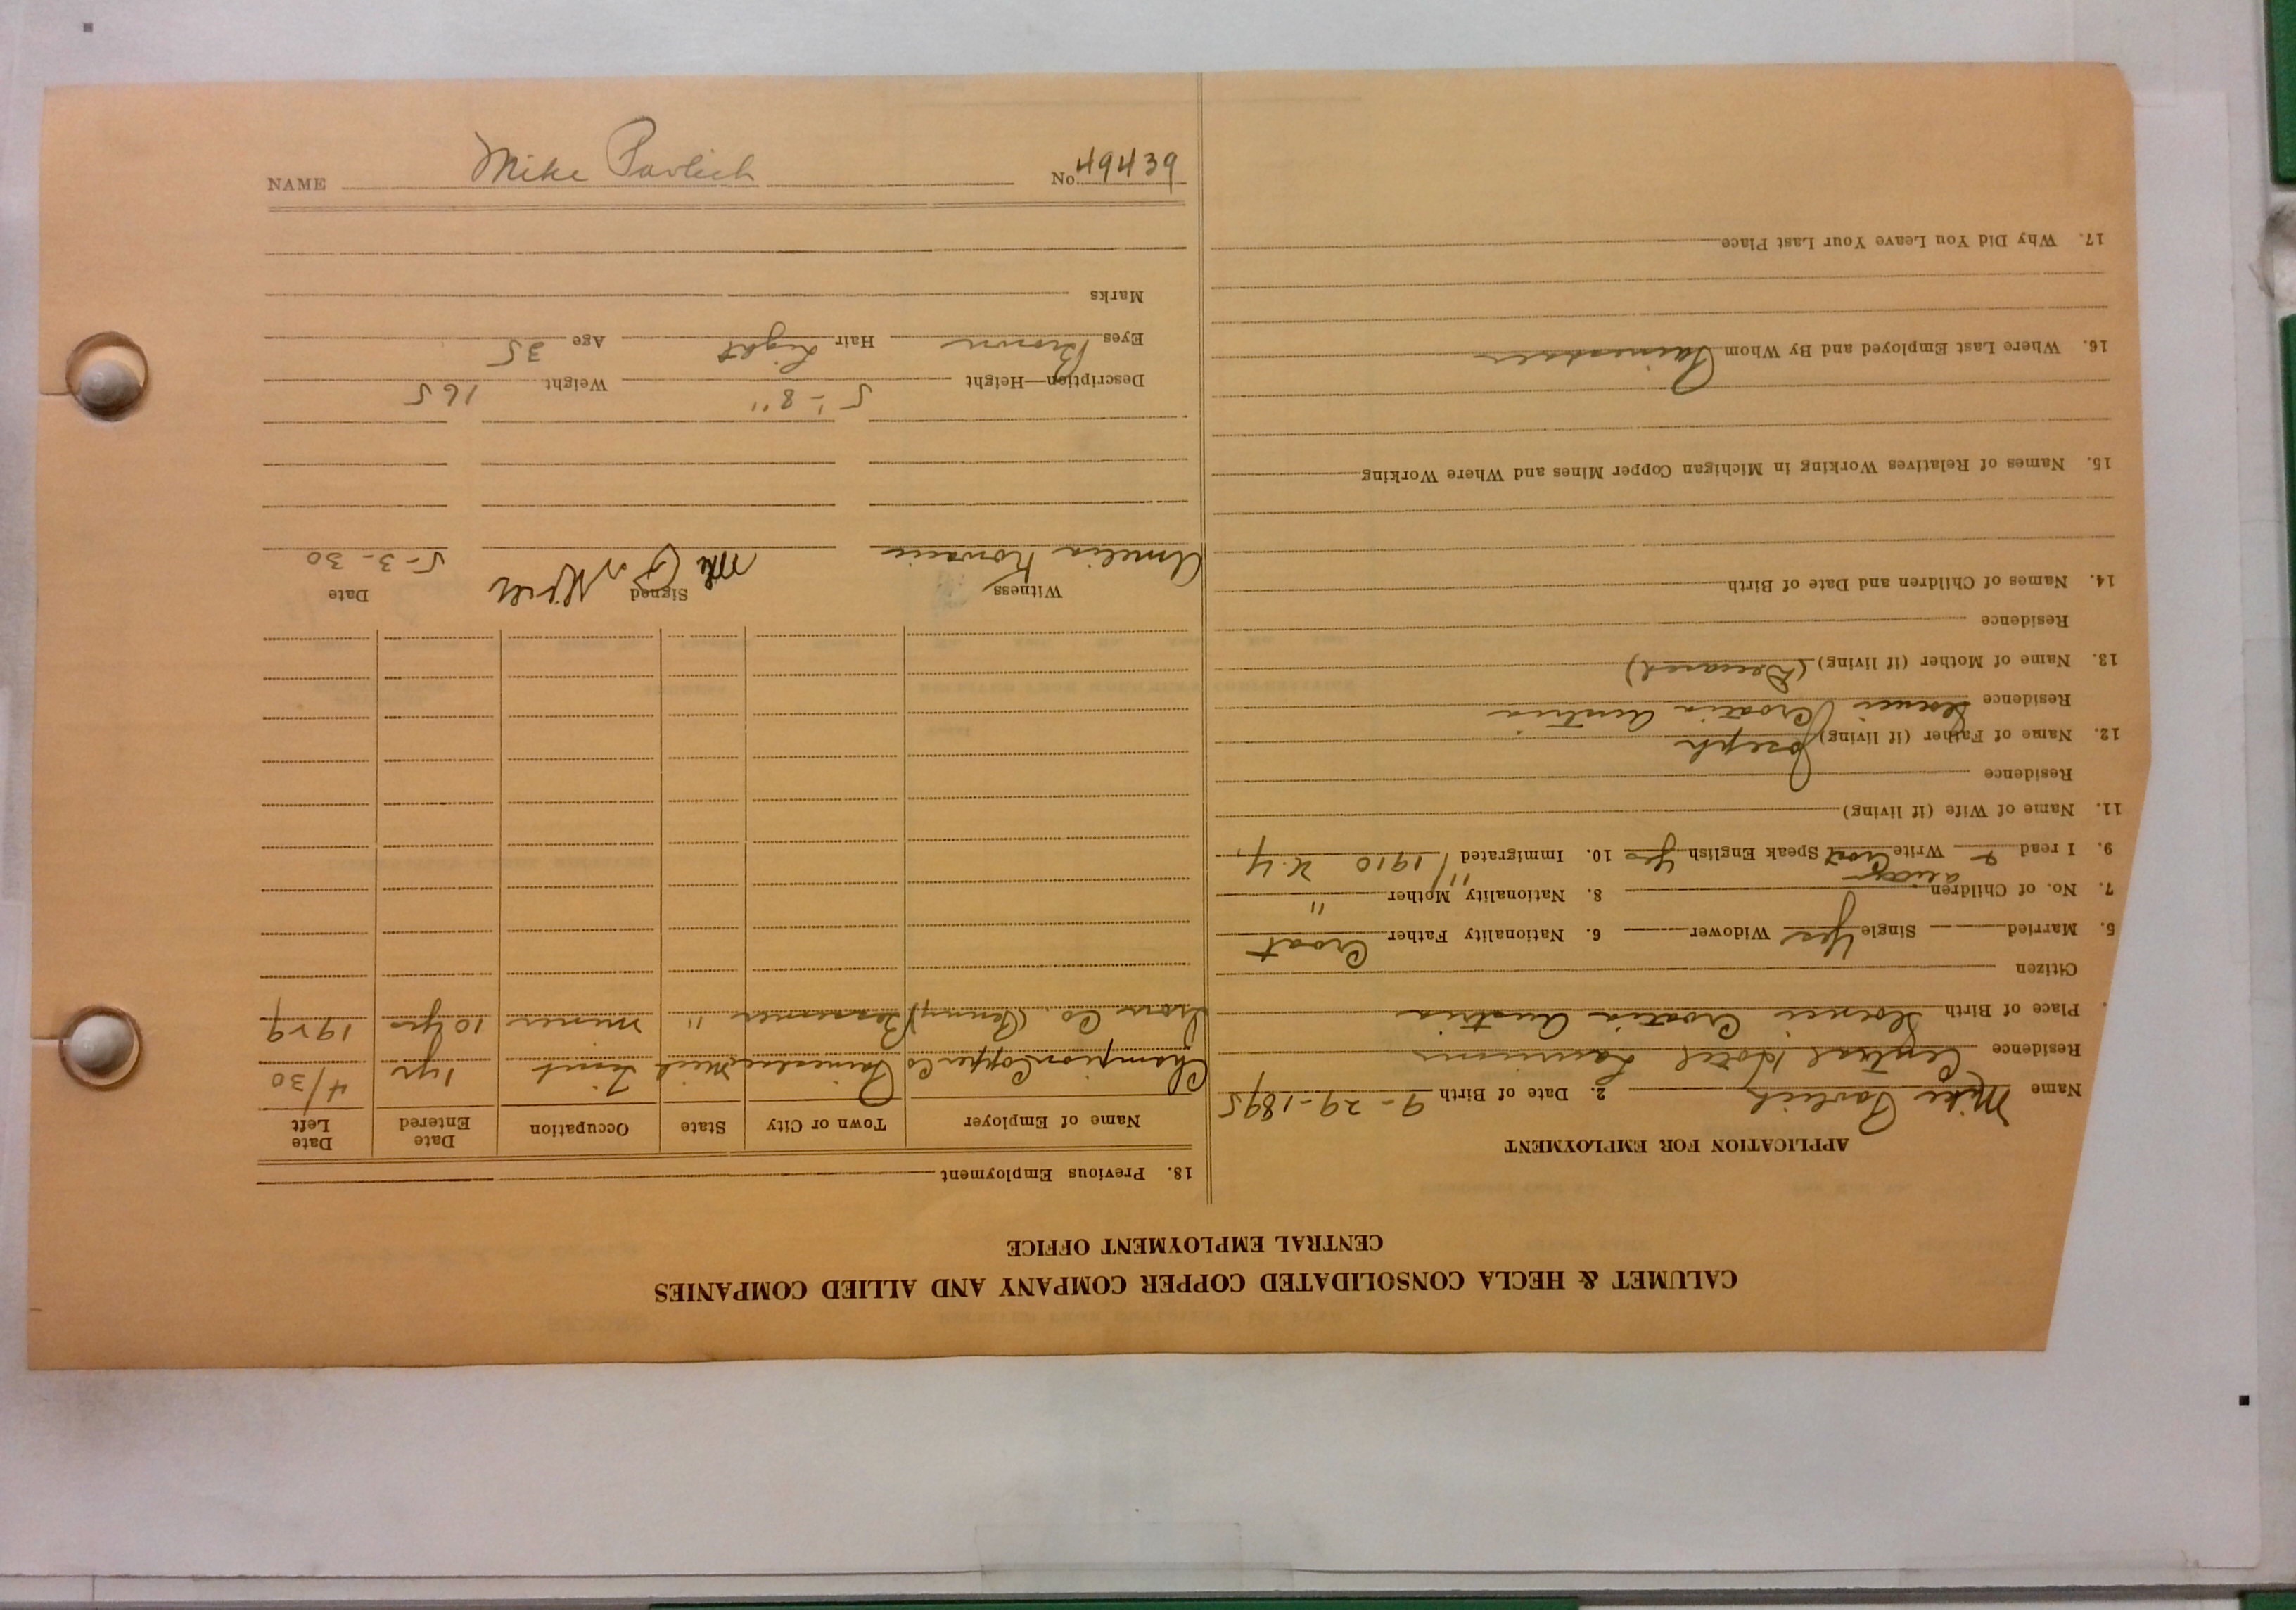 NAME Mike Pavlich No. 49439
CALUMET & HECLA CONSOLIDATED COPPER COMPANY AND ALLIED COMPANIES
CENTRAL EMPLOYMENT OFFICE
APPLICATION FOR EMPLOYMENT
Name Mike Pavlich 2. Date of Birth 9-29-1895
Residence Central Hotel Laurium
Place of Birth Croatia Austria
Citizen
5. Married Single Yes Widower 6. Nationality Father Croat
7. No. of Children 8. Nationality Mother "
9. I read & Write Croat Speak English Yes 10. Immigrated 1910 N.Y.
11. Name of Wife (if living)
Residence
12. Name of Father (if living) Joseph
Residence Croatia Austria
13. Name of Mother (if living) (Deceased)
Residence
14. Names of Children and Date of Birth
15. Names of Relatives Working in Michigan Copper Mines and Where Working
16. Where Last Employed and By Whom Painesdale
17. Why Did You Leave Your Last Place
18. Previous Employment
Name of Employer Town or City State Occupation Date Entered Date Left
Champion Copper Co Painesdale Mich 1 yr 4/30
Co. Bessemer " miner 10 yrs 1929
Witness Signed Date
Amelia 5-3-30
Description—Height 5'-8" Weight 165
Eyes Brown Hair Light Age 35
Marks